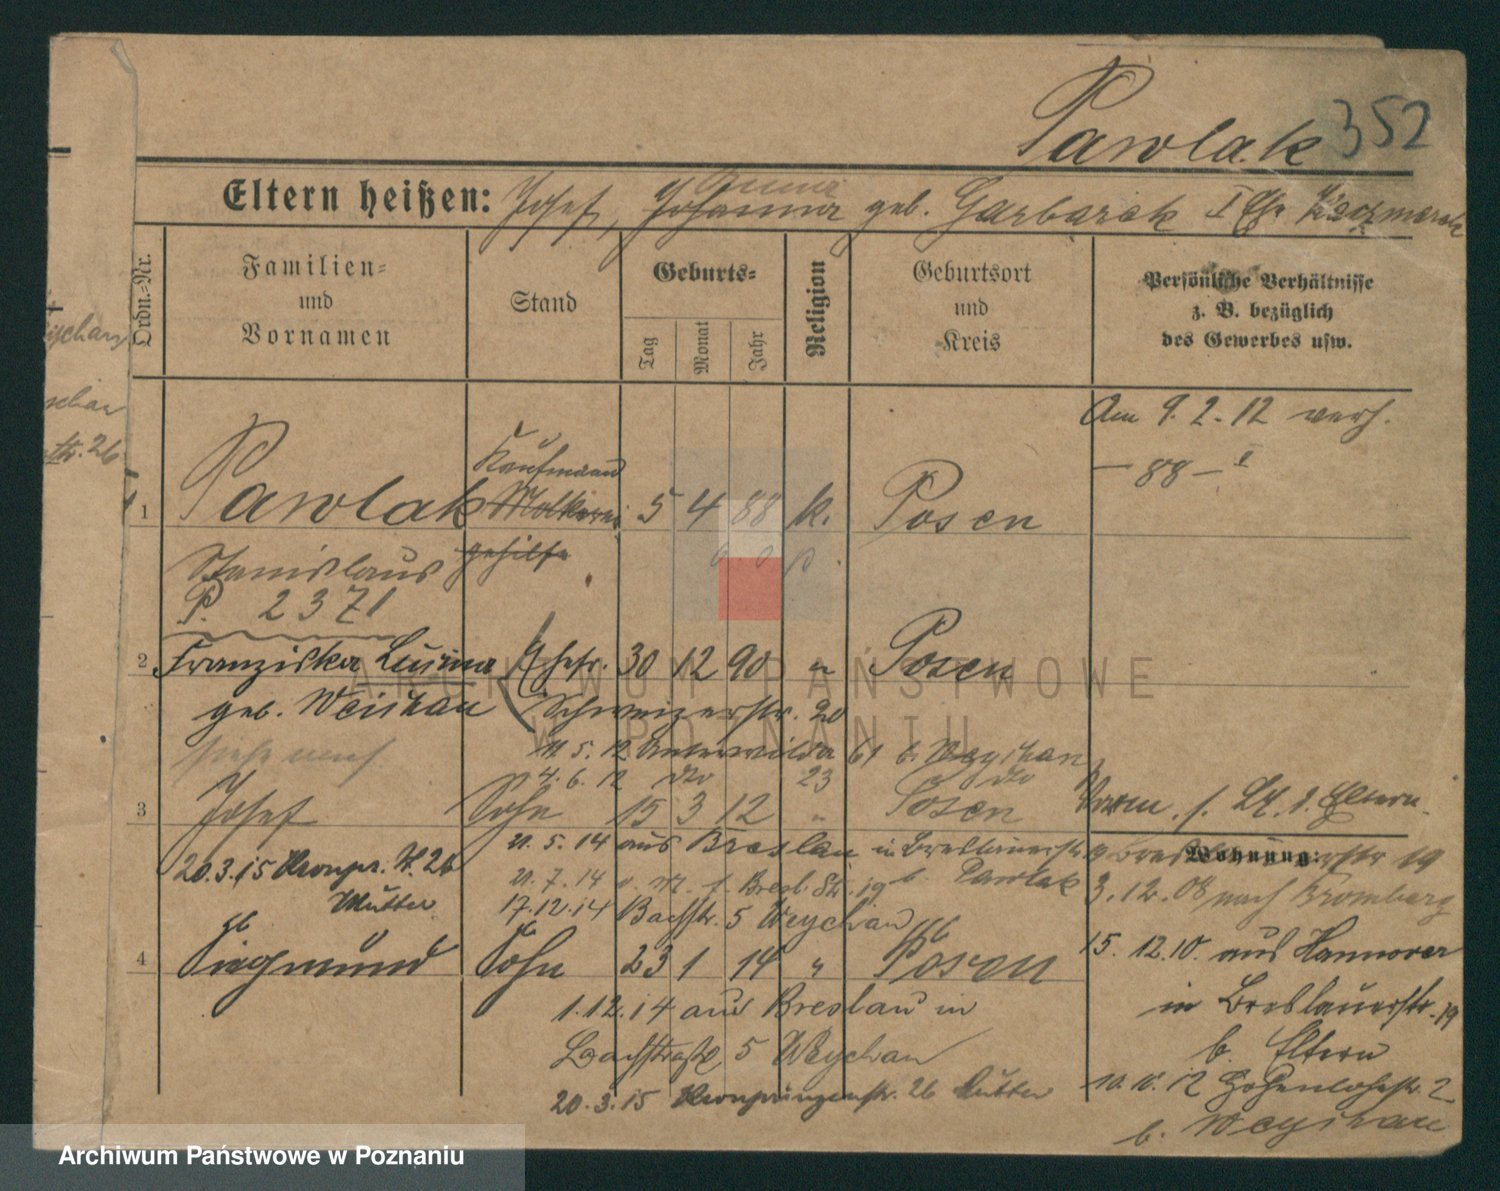 Pawlak 352
Eltern heißen: Josef, Johanna geb. Garbarek I Ehe Kaczmarek
Anna
Ordn.-Nr.
Familien-
und
Vornamen
Stand
Geburts-
Tag
Monat
Jahr
Religion
Geburtsort
und
Kreis
Persönliche Verhältnisse
z. B. bezüglich
des Gewerbes usw.
Am 9. 2. 12 verh.
— 88 — I
Kaufmann
1 Pawlak Molkerei 5 4 88 k. Posen
Stanislaus gehilfe
P. 2371
2 Franziska Ehefr. 30 12 90 " Posen
geb. Weichan Schweizerstr. 20
siehe auch 11. 5. 12 Unterwilda 61 b. Weychan
4. 6. 12 dto 23 dto
3 Josef Sohn 15 3 12 " Posen
Eltern
21. 5. 14 aus Breslau in Breslauerstr. 19
b. Pawlak
20. 3. 15 Kronpr. Str. 26
Mutter
21. 7. 14 Bresl. Str. 19
17. 12. 14 Bachstr. 5 Weychan
4 Siegmund Sohn 23 1 14 " Posen
1. 12. 14 aus Breslau in
Bachstraße 5 Weychan
20. 3. 15 Kronprinzenstr. 26 Mutter
Wohnung:
3. 12. 08 nach Bromberg
15. 12. 10. aus Hannover
in Breslauerstr. 19
b. Eltern
10. 10. 12 Hohenlohestr. 2
b. Weychan
ychan
schan
str. 26
ARCHIWUM PAŃSTWOWE
W POZNANIU
Archiwum Państwowe w Poznaniu